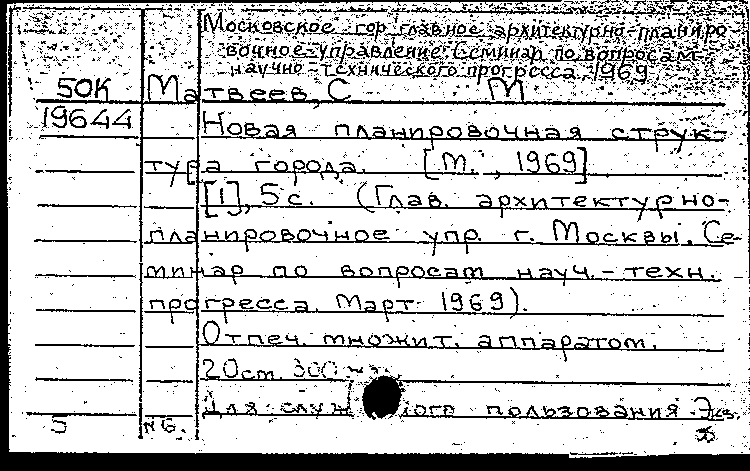 Московское гор главное архитектурно-планиро
вочное управление. Семинар по вопросам
научно-технического прогресса. 1969
50К Матвеев, С М
19644 Новая планировочная струк-
тура города. [М., 1969]
[1], 5 с. (Глав. архитектурно-
планировочное упр. г. Москвы. Се-
минар по вопросам науч.-техн.
прогресса. Март 1969).
Отпеч. множит. аппаратом.
20 ст. 300
Для пользования. Экз.
5 № 6.